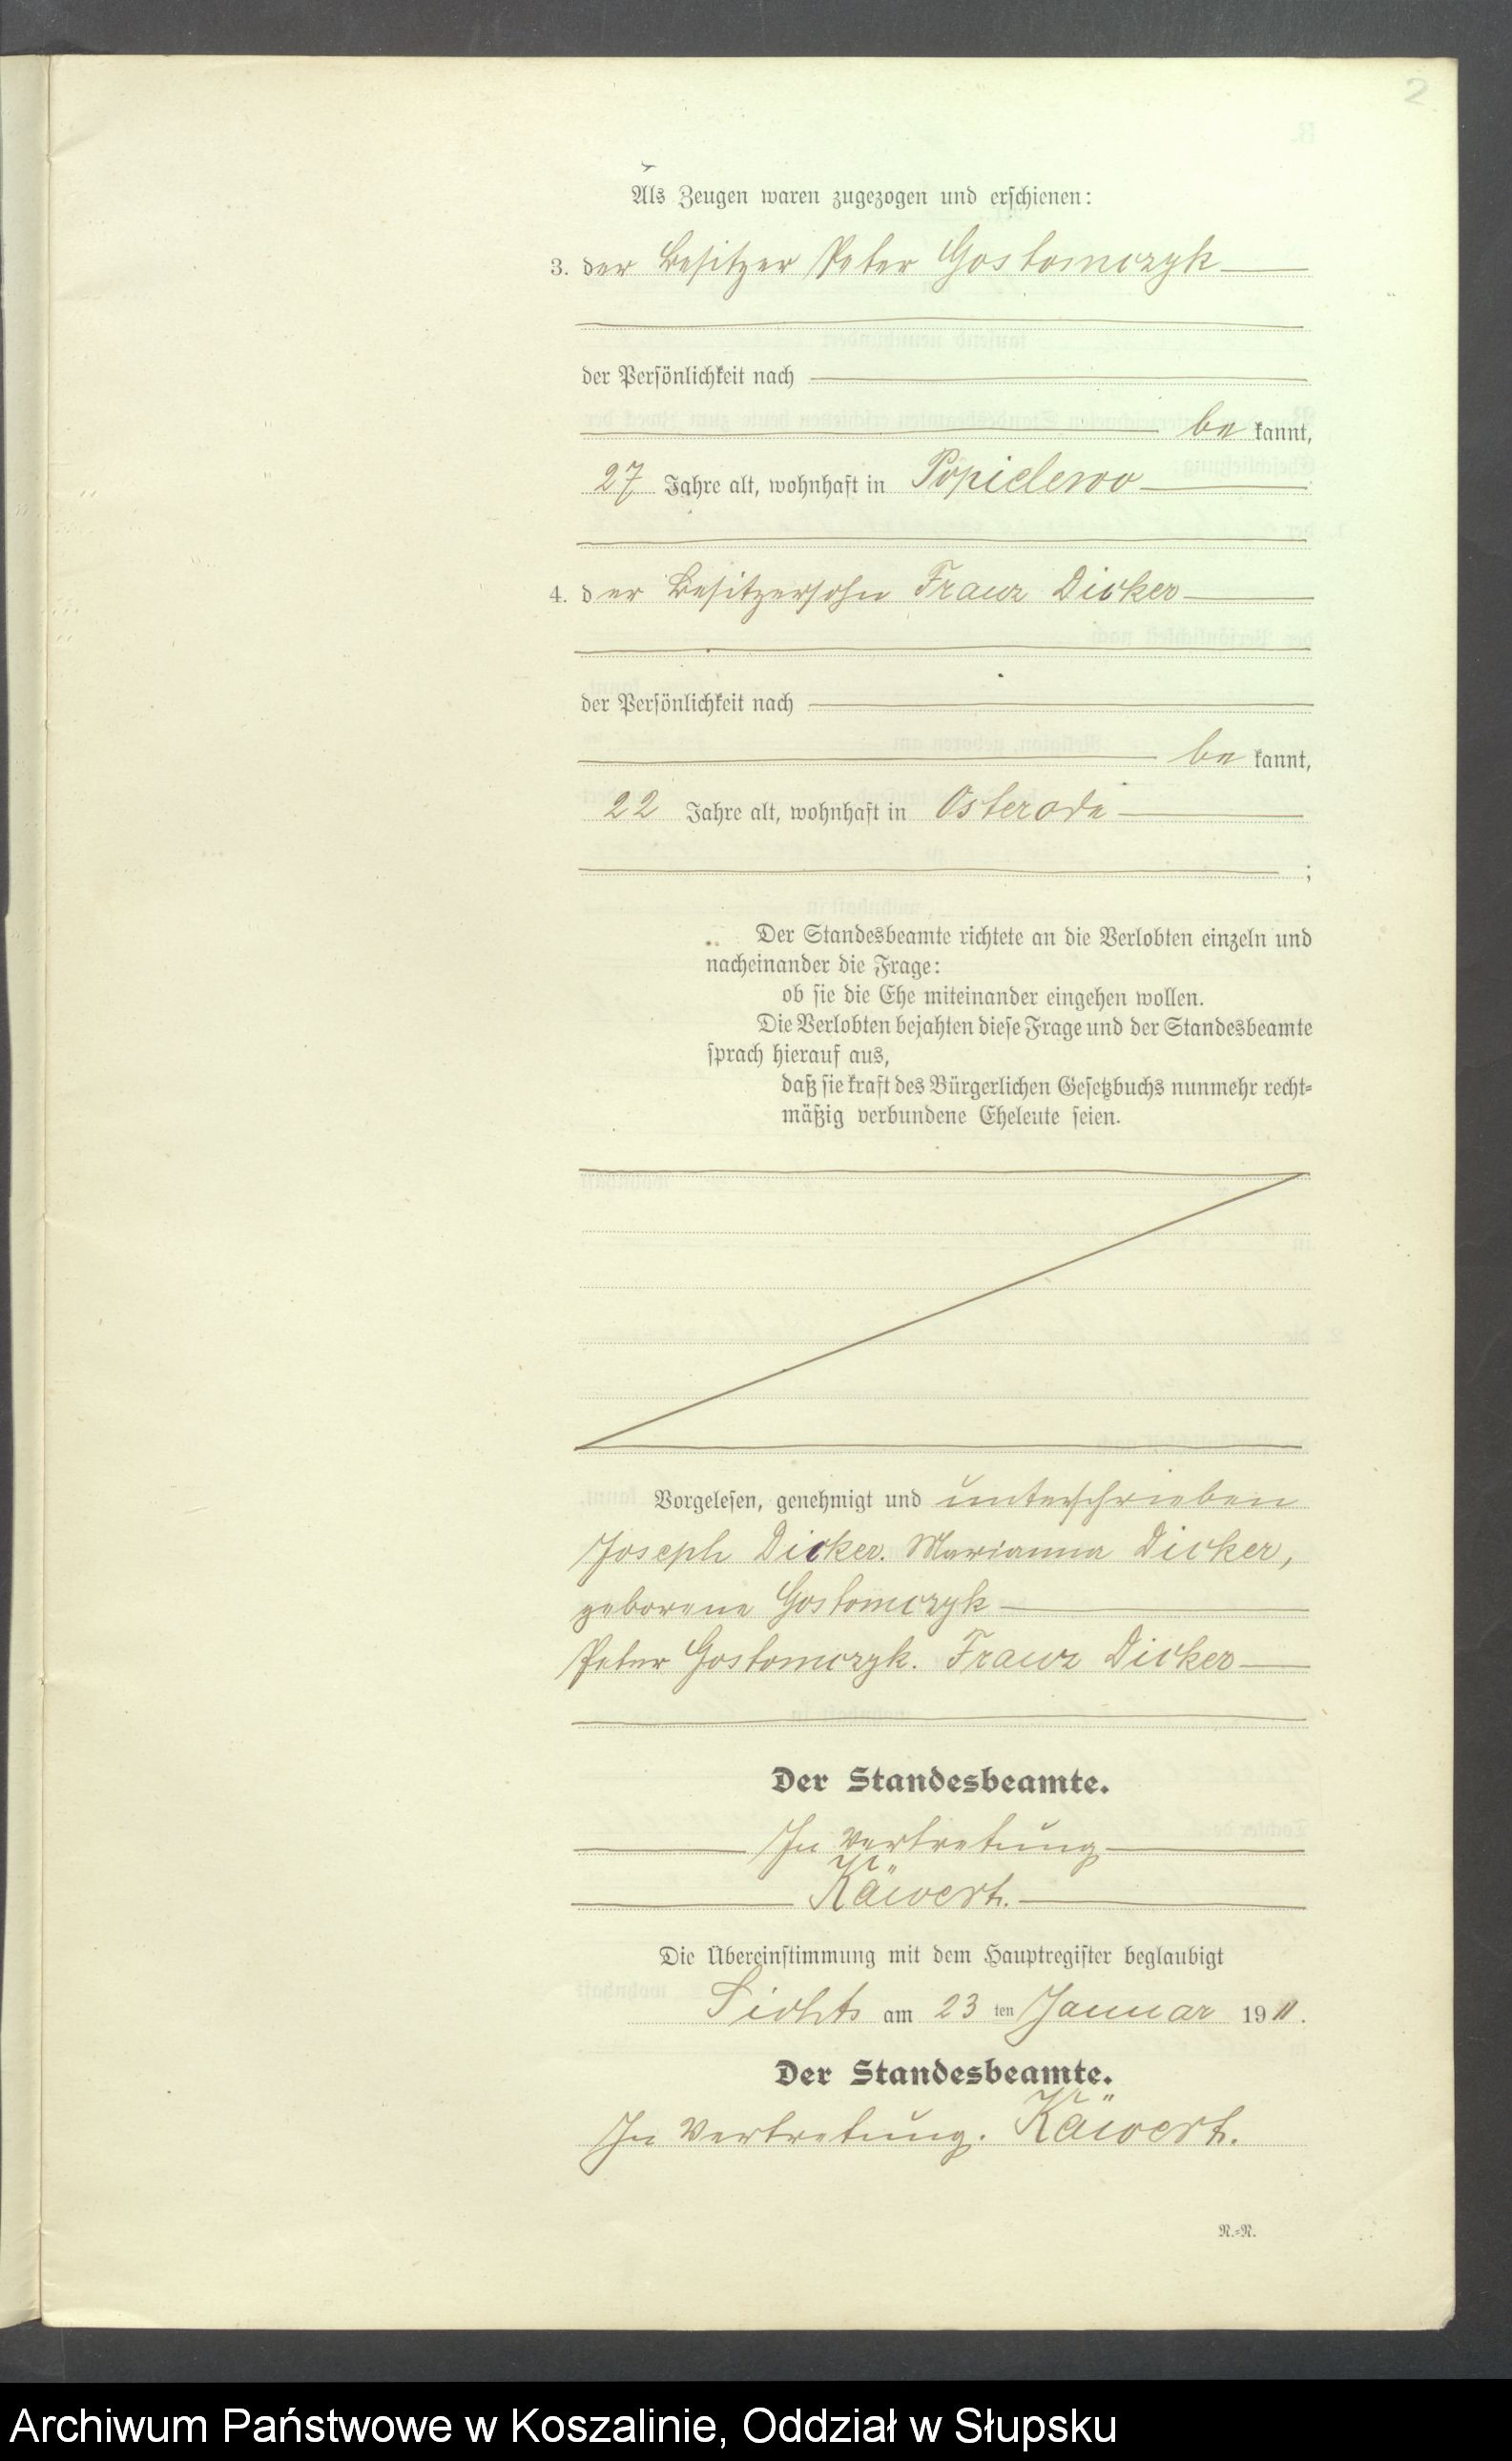 2
Als Zeugen waren zugezogen und erschienen:
3. der Besitzer Peter Gostomczyk
der Persönlichkeit nach
be kannt,
27 Jahre alt, wohnhaft in Popielewo
4. der Besitzersohn Franz Dicker
der Persönlichkeit nach
be kannt,
22 Jahre alt, wohnhaft in Osterode
;
Der Standesbeamte richtete an die Verlobten einzeln und
nacheinander die Frage:
ob sie die Ehe miteinander eingehen wollen.
Die Verlobten bejahten diese Frage und der Standesbeamte
sprach hierauf aus,
daß sie kraft des Bürgerlichen Gesetzbuchs nunmehr recht-
mäßig verbundene Eheleute seien.
Vorgelesen, genehmigt und unterschrieben
Joseph Dicker. Marianna Dicker,
geborene Gostomczyk
Peter Gostomczyk. Franz Dicker
Der Standesbeamte.
In Vertretung
Käwert.
Die Übereinstimmung mit dem Hauptregister beglaubigt
Sichts am 23 ten Januar 1911.
Der Standesbeamte.
In Vertretung. Käwert.
N.-N.
Archiwum Państwowe w Koszalinie, Oddział w Słupsku